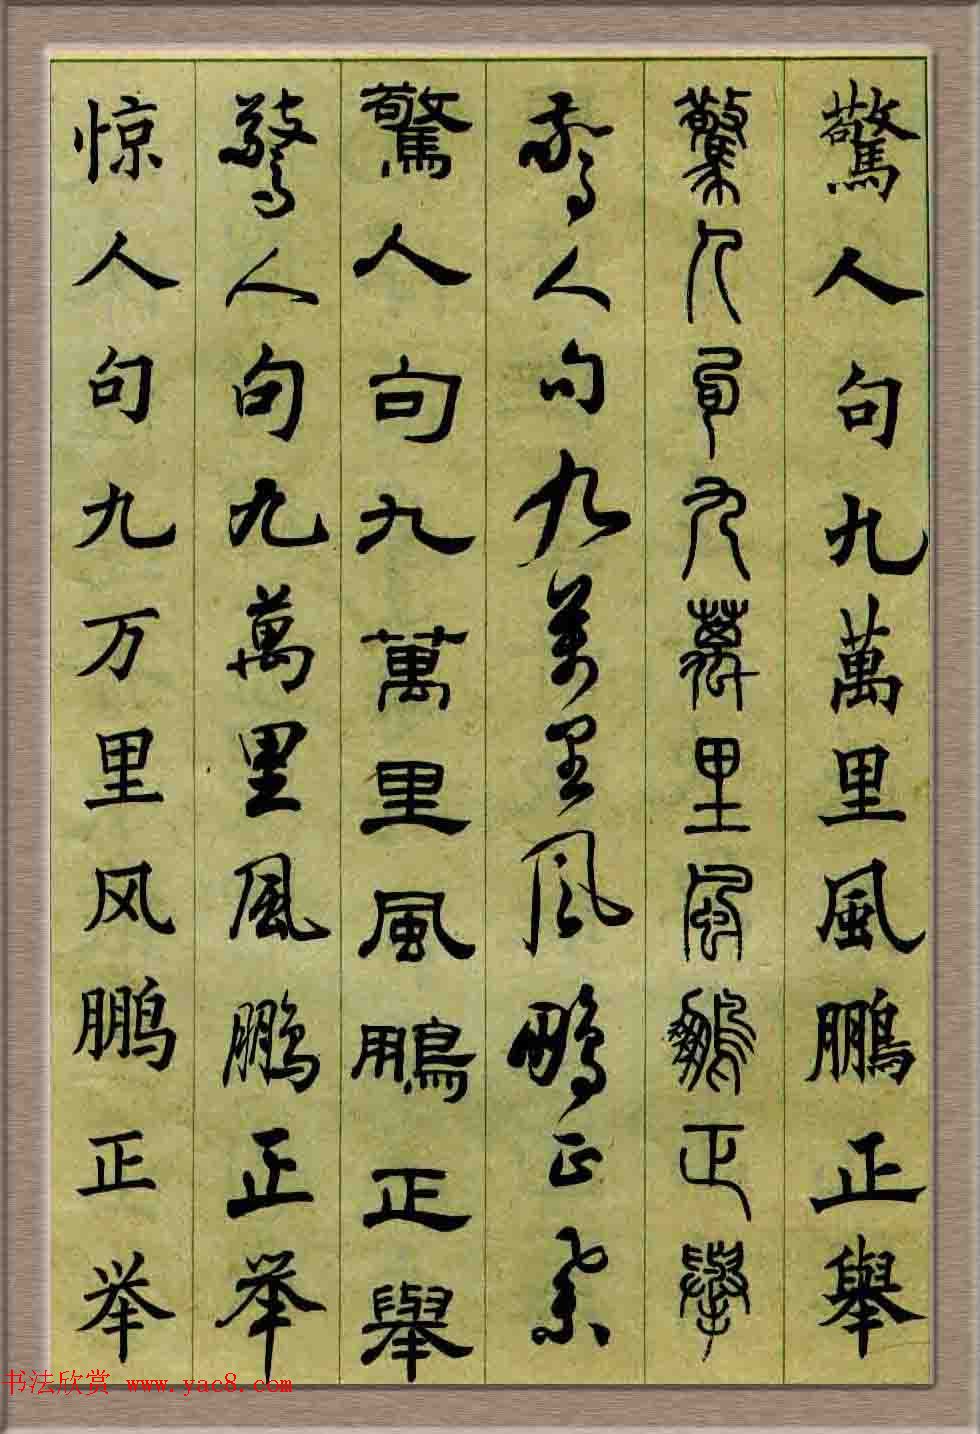 驚人句九萬里風鵬正舉
驚人句九萬里風鵬正舉
驚人句九萬里風鵬正舉
驚人句九萬里風鵬正舉
驚人句九萬里風鵬正举
惊人句九万里风鹏正举
书法欣赏 www.yac8.com